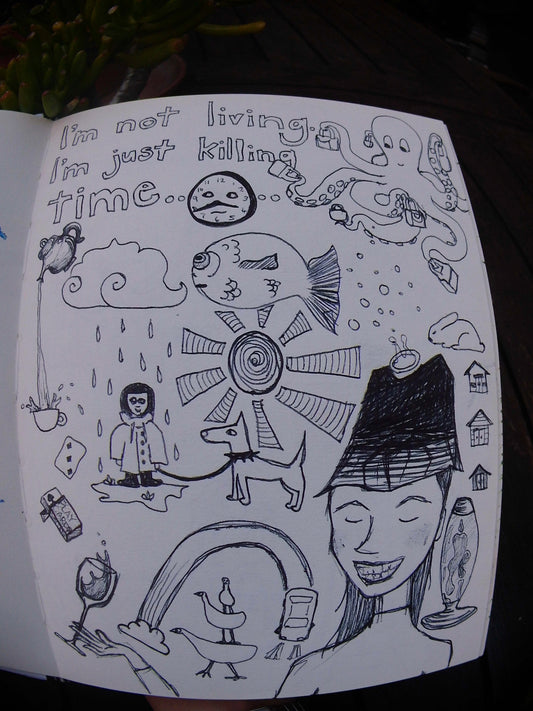 I'm not living.
I'm just killing
time....